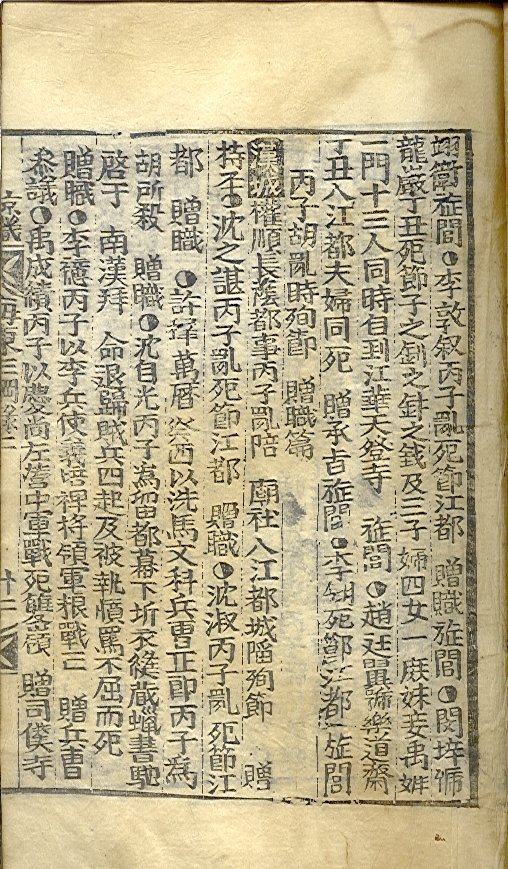 翊衛旌閭●李敦叙丙子亂死節江都 贈職旌閭●閔垶號
龍巖丁丑死節子之釗之釬之鈛及三子婦四女一 庶妹妾禹姓
一門十三人同時自到江華天登寺 旌閭●趙廷翼號樂道齋
丁丑入江都夫婦同死 贈承旨旌閭●李 死節江都 旌閭
丙子胡亂時殉節 贈職篇
漢城權順長蔭都事丙子亂陪 廟社入江都城陷殉節 贈
持平●沈之諶丙子亂死節江都 贈職●沈淑丙子亂死節江
都 贈職●許擇萬曆癸酉以洗馬文科兵曹正郎丙子爲
胡所殺 贈職●沈自光丙子爲留都幕下圻衣縫藏蠟書馳
啓于 南漢拜 命退歸賊兵四起及被執憤罵不屈而死
贈職●李德丙子以李兵使義培裨將領軍根戰亡 贈兵曹
叅議●禹成績丙子以慶尚左營中軍戰死雙嶺 贈司僕寺
海東三綱錄二 十二